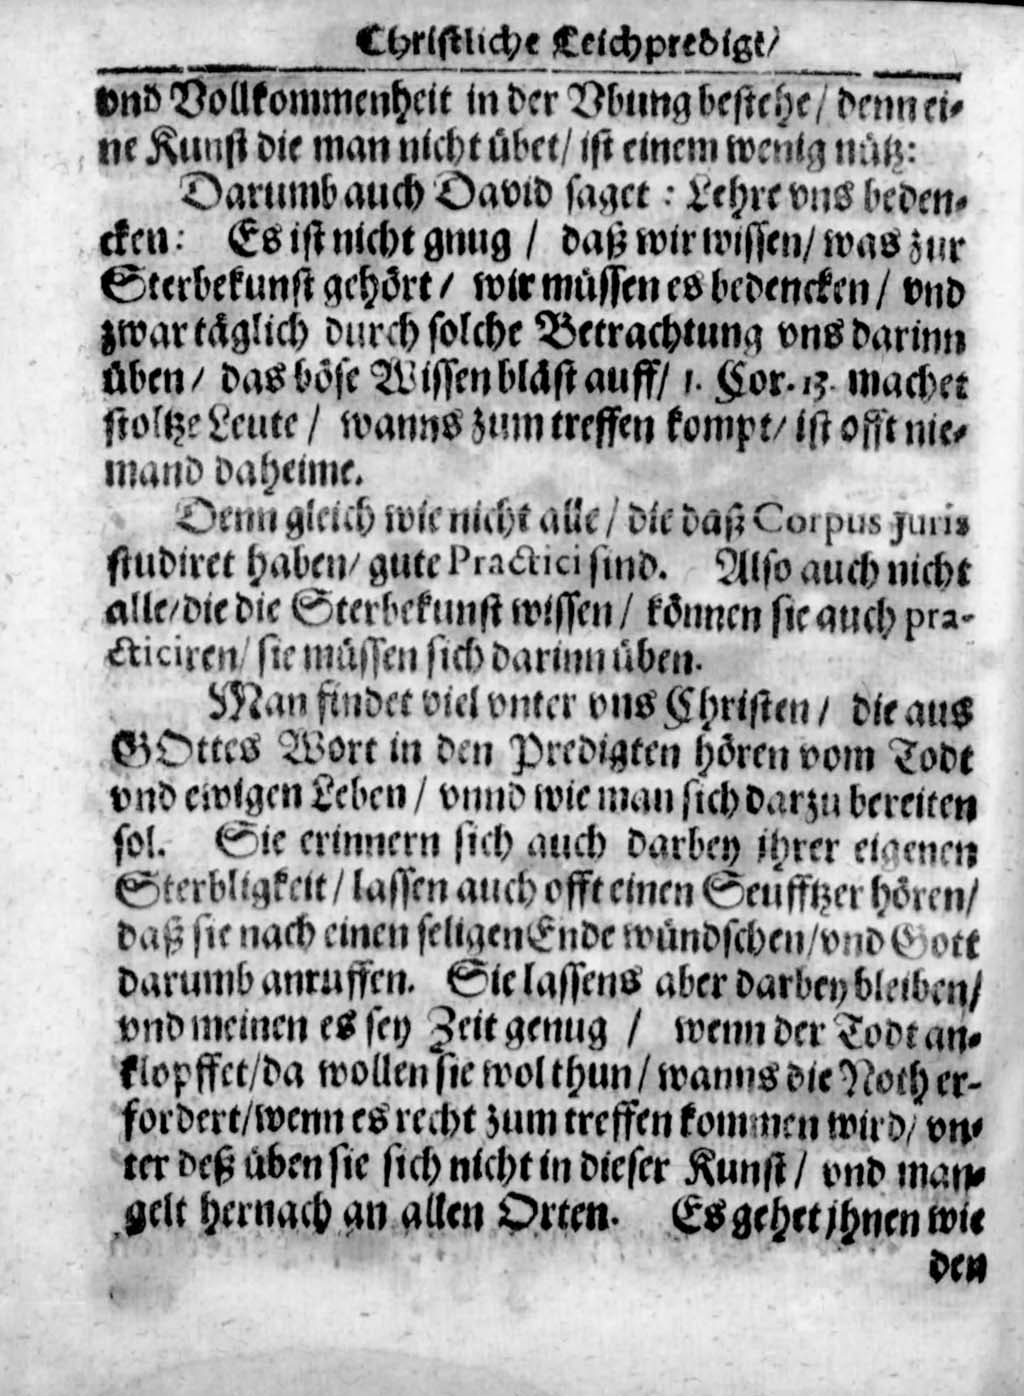 Christliche Leichpredigt/
vnd Vollkommenheit in der Vbung bestehe/ denn ei-
ne Kunst die man nicht übet/ ist einem wenig nütz:
Darumb auch David saget: Lehre vns beden-
cken: Es ist nicht gnug / daß wir wissen/ was zur
Sterbekunst gehört/ wir müssen es bedencken/ vnd
zwar täglich durch solche Betrachtung vns darinn
üben/ das böse Wissen bläst auff/ 1. Cor. 13. machet
stoltze Leute / wanns zum treffen kompt/ ist offt nie-
mand daheime.
Denn gleich wie nicht alle/ die daß Corpus Juris
studiret haben/ gute Practici sind. Also auch nicht
alle/ die die Sterbekunst wissen/ können sie auch pra-
cticiren/ sie müssen sich darinn üben.
Man findet viel vnter vns Christen/ die aus
GOttes Wort in den Predigten hören vom Todt
vnd ewigen Leben/ vnnd wie man sich darzu bereiten
sol. Sie erinnern sich auch darbey jhrer eigenen
Sterbligkeit/ lassen auch offt einen Seufftzer hören/
daß sie nach einen seligen Ende wündschen/ vnd Gott
darumb anruffen. Sie lassens aber darbey bleiben/
vnd meinen es sey Zeit genug / wenn der Todt an-
klopffet/ da wollen sie wol thun/ wanns die Noth er-
fordert/ wenn es recht zum treffen kommen wird/ vn-
ter deß üben sie sich nicht in dieser Kunst/ vnd man-
gelt hernach an allen Orten. Es gehet jhnen wie
den